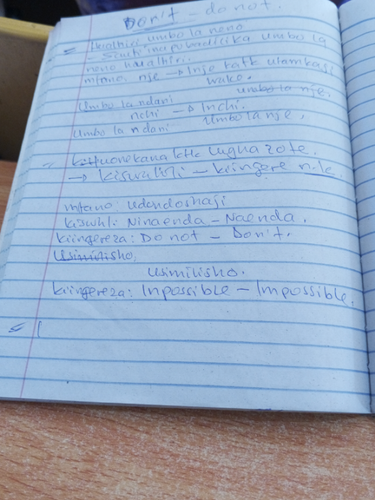 Don't - do not.
Huathiri umbo la neno
- Sauti inapobadilika umbo la
neno huathiri.
mfano, nje → Inje katk utamkaji
wake.
umbo la nje.
Umbo la ndani
nchi → Inchi.
Umbo la ndani Umbo la nje.
katk lugha zote.
→ kiswahili - kiingere n.k.
mfano: udondoshaji
kiswhli: Ninaenda - Naenda.
kiingereza: Do not - Don't.
Usimilisho.
Usimilisho.
kiingereza: Inpossible - Impossible.